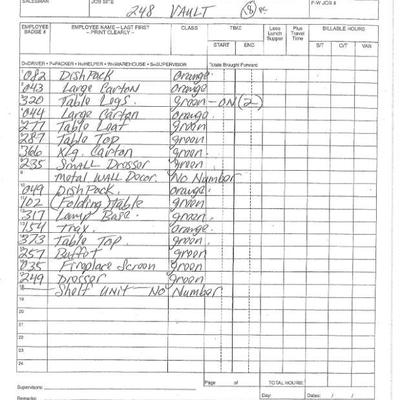 SALESMAN JOB SITE 248 VAULT (18) PC P-W JOB #
EMPLOYEE BADGE # EMPLOYEE NAME - LAST FIRST - PRINT CLEARLY - CLASS TIME START END Less Lunch Supper Plus Travel Time BILLABLE HOURS S/T O/T VAN
D=DRIVER P=PACKER H=HELPER W=WAREHOUSE S=SUPERVISOR *Totals Brought Forward
082 DishPack orange.
043 Large Carton orange
320 Table Legs. green - ON (2)
044 Large Carton orange
277 Table Leaf green
287 Table Top green
366 XLg. Carton green.
235 Small Dresser green
9 metal WALL Decor. No Number
049 DishPack. orange.
102 (Folding) Table green
317 Lamp Base. green
154 Tray. orange.
373 Table Top. green
257 Buffet green
035 Fireplace Screen green
249 Dresser green
18 Shelf UNIT - No Number
19
20
21
22
23
24
Supervisors: Page of TOTAL HOURS
Day: Dates: / /